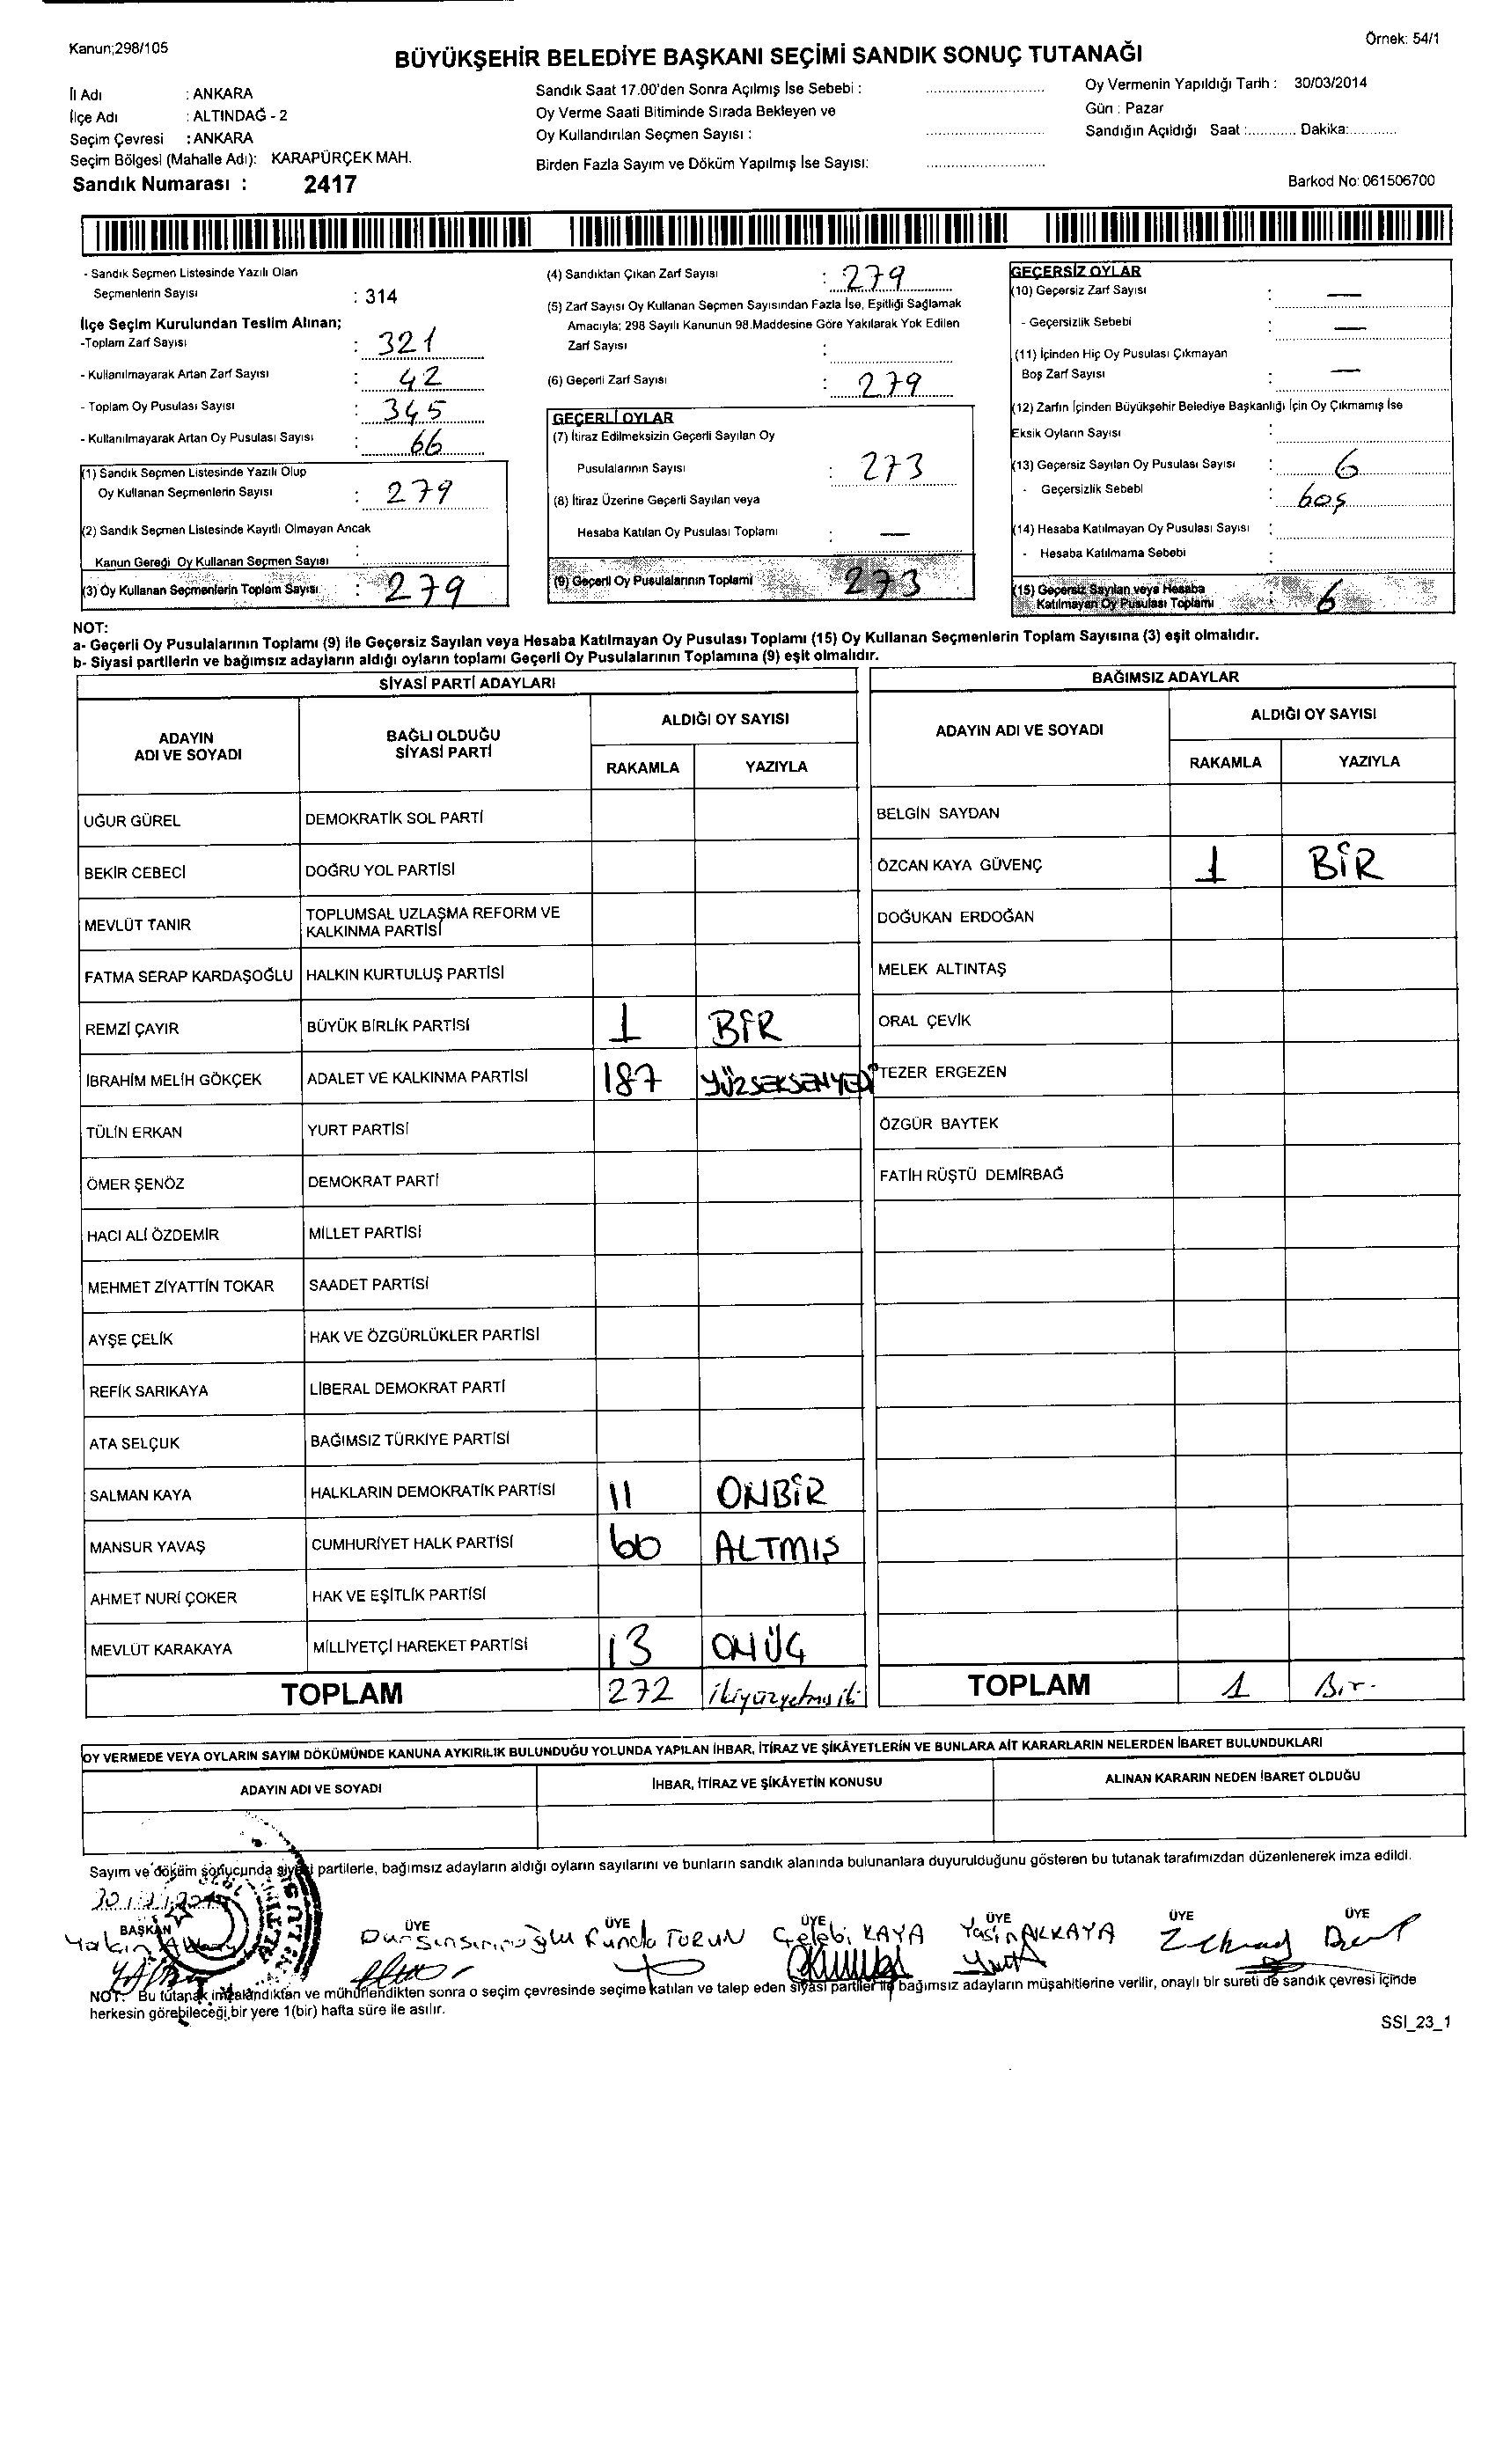 Kanun;298/105
Örnek: 54/1
BÜYÜKŞEHİR BELEDİYE BAŞKANI SEÇİMİ SANDIK SONUÇ TUTANAĞI
İl Adı : ANKARA
İlçe Adı : ALTINDAĞ - 2
Seçim Çevresi : ANKARA
Seçim Bölgesi (Mahalle Adı): KARAPÜRÇEK MAH.
Sandık Numarası : 2417
Sandık Saat 17.00'den Sonra Açılmış İse Sebebi :
Oy Verme Saati Bitiminde Sırada Bekleyen ve
Oy Kullandırılan Seçmen Sayısı :
Birden Fazla Sayım ve Döküm Yapılmış İse Sayısı:
Oy Vermenin Yapıldığı Tarih : 30/03/2014
Gün : Pazar
Sandığın Açıldığı Saat :............ Dakika:............
Barkod No: 061506700
- Sandık Seçmen Listesinde Yazılı Olan
Seçmenlerin Sayısı : 314
İlçe Seçim Kurulundan Teslim Alınan;
-Toplam Zarf Sayısı : 321
- Kullanılmayarak Artan Zarf Sayısı : 42
- Toplam Oy Pusulası Sayısı : 345
- Kullanılmayarak Artan Oy Pusulası Sayısı : 66
(1) Sandık Seçmen Listesinde Yazılı Olup
Oy Kullanan Seçmenlerin Sayısı : 279
(2) Sandık Seçmen Listesinde Kayıtlı Olmayan Ancak
Kanun Gereği Oy Kullanan Seçmen Sayısı :
(3) Oy Kullanan Seçmenlerin Toplam Sayısı : 279
(4) Sandıktan Çıkan Zarf Sayısı : 279
(5) Zarf Sayısı Oy Kullanan Seçmen Sayısından Fazla İse, Eşitliği Sağlamak
Amacıyla; 298 Sayılı Kanunun 98.Maddesine Göre Yakılarak Yok Edilen
Zarf Sayısı :
(6) Geçerli Zarf Sayısı : 279
GEÇERLİ OYLAR
(7) İtiraz Edilmeksizin Geçerli Sayılan Oy
Pusulalarının Sayısı : 273
(8) İtiraz Üzerine Geçerli Sayılan veya
Hesaba Katılan Oy Pusulası Toplamı : —
(9) Geçerli Oy Pusulalarının Toplamı 273
GEÇERSİZ OYLAR
(10) Geçersiz Zarf Sayısı : —
- Geçersizlik Sebebi : —
(11) İçinden Hiç Oy Pusulası Çıkmayan
Boş Zarf Sayısı : —
(12) Zarfın İçinden Büyükşehir Belediye Başkanlığı İçin Oy Çıkmamış İse
Eksik Oyların Sayısı :
(13) Geçersiz Sayılan Oy Pusulası Sayısı : 6
- Geçersizlik Sebebi : boş
(14) Hesaba Katılmayan Oy Pusulası Sayısı :
- Hesaba Katılmama Sebebi :
(15) Geçersiz Sayılan veya Hesaba
Katılmayan Oy Pusulası Toplamı : 6
NOT:
a- Geçerli Oy Pusulalarının Toplamı (9) ile Geçersiz Sayılan veya Hesaba Katılmayan Oy Pusulası Toplamı (15) Oy Kullanan Seçmenlerin Toplam Sayısına (3) eşit olmalıdır.
b- Siyasi partilerin ve bağımsız adayların aldığı oyların toplamı Geçerli Oy Pusulalarının Toplamına (9) eşit olmalıdır.
SİYASİ PARTİ ADAYLARI
ADAYIN
ADI VE SOYADI
BAĞLI OLDUĞU
SİYASİ PARTİ
ALDIĞI OY SAYISI
RAKAMLA YAZIYLA
UĞUR GÜREL DEMOKRATİK SOL PARTİ
BEKİR CEBECİ DOĞRU YOL PARTİSİ
MEVLÜT TANIR TOPLUMSAL UZLAŞMA REFORM VE
KALKINMA PARTİSİ
FATMA SERAP KARDAŞOĞLU HALKIN KURTULUŞ PARTİSİ
REMZİ ÇAYIR BÜYÜK BİRLİK PARTİSİ 1 BİR
İBRAHİM MELİH GÖKÇEK ADALET VE KALKINMA PARTİSİ 187 YÜZSEKSENYEDİ
TÜLİN ERKAN YURT PARTİSİ
ÖMER ŞENÖZ DEMOKRAT PARTİ
HACI ALİ ÖZDEMİR MİLLET PARTİSİ
MEHMET ZİYATTİN TOKAR SAADET PARTİSİ
AYŞE ÇELİK HAK VE ÖZGÜRLÜKLER PARTİSİ
REFİK SARIKAYA LİBERAL DEMOKRAT PARTİ
ATA SELÇUK BAĞIMSIZ TÜRKİYE PARTİSİ
SALMAN KAYA HALKLARIN DEMOKRATİK PARTİSİ 11 ONBİR
MANSUR YAVAŞ CUMHURİYET HALK PARTİSİ 60 ALTMIŞ
AHMET NURİ ÇOKER HAK VE EŞİTLİK PARTİSİ
MEVLÜT KARAKAYA MİLLİYETÇİ HAREKET PARTİSİ 13 ONÜÇ
TOPLAM 272 ikiyüzyetmiş iki
BAĞIMSIZ ADAYLAR
ADAYIN ADI VE SOYADI
ALDIĞI OY SAYISI
RAKAMLA YAZIYLA
BELGİN SAYDAN
ÖZCAN KAYA GÜVENÇ 1 BİR
DOĞUKAN ERDOĞAN
MELEK ALTINTAŞ
ORAL ÇEVİK
TEZER ERGEZEN
ÖZGÜR BAYTEK
FATİH RÜŞTÜ DEMİRBAĞ
TOPLAM 1 Bir.
OY VERMEDE VEYA OYLARIN SAYIM DÖKÜMÜNDE KANUNA AYKIRILIK BULUNDUĞU YOLUNDA YAPILAN İHBAR, İTİRAZ VE ŞİKÂYETLERİN VE BUNLARA AİT KARARLARIN NELERDEN İBARET BULUNDUKLARI
ADAYIN ADI VE SOYADI İHBAR, İTİRAZ VE ŞİKÂYETİN KONUSU ALINAN KARARIN NEDEN İBARET OLDUĞU
Sayım ve döküm sonucunda siyasi partilerle, bağımsız adayların aldığı oyların sayılarını ve bunların sandık alanında bulunanlara duyurulduğunu gösteren bu tutanak tarafımızdan düzenlenerek imza edildi.
BAŞKAN ÜYE ÜYE ÜYE ÜYE ÜYE ÜYE
Funda TORUN Çelebi KAYA Yasin AKKAYA
NOT: Bu tutanak imzalandıktan ve mühürlendikten sonra o seçim çevresinde seçime katılan ve talep eden siyasi partiler ile bağımsız adayların müşahitlerine verilir, onaylı bir sureti de sandık çevresi içinde
herkesin görebileceği bir yere 1(bir) hafta süre ile asılır.
SSI_23_1